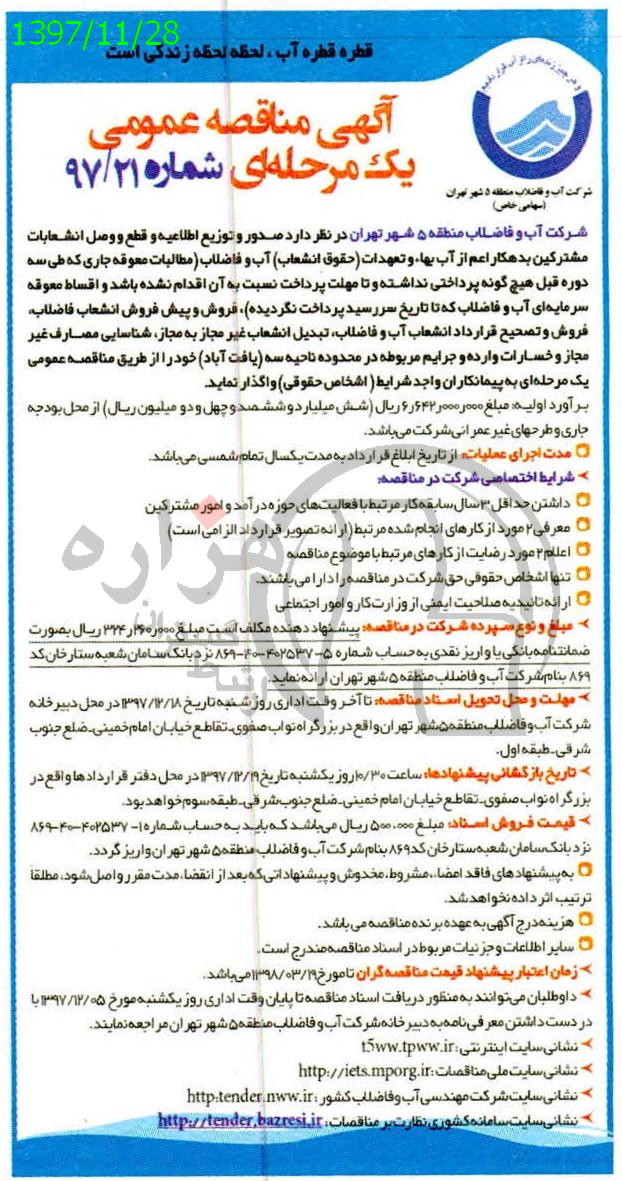 1397/11/28
قطره قطره آب ، لحظه لحظه زندگی است
و هر چیز زنده‌ای را از آب قرار دادیم
شرکت آب و فاضلاب منطقه ۵ شهر تهران
(سهامی خاص)
آگهی مناقصه عمومی
یک مرحله‌ای شماره ۹۷/۲۱
شرکت آب و فاضلاب منطقه ۵ شهر تهران در نظر دارد صدور و توزیع اطلاعیه و قطع و وصل انشعابات
مشترکین بدهکار اعم از آب بهاء و تعهدات (حقوق انشعاب) آب و فاضلاب (مطالبات معوقه جاری که طی سه
دوره قبل هیچ گونه پرداختی نداشته و تا مهلت پرداخت نسبت به آن اقدام نشده باشد و اقساط معوقه
سرمایه‌ای آب و فاضلاب که تا تاریخ سررسید پرداخت نگردیده)، فروش و پیش فروش انشعاب فاضلاب،
فروش و تصحیح قرارداد انشعاب آب و فاضلاب، تبدیل انشعاب غیر مجاز به مجاز، شناسایی مصارف غیر
مجاز و خسارات وارده و جرایم مربوطه در محدوده ناحیه سه (یافت آباد) خود را از طریق مناقصه عمومی
یک مرحله‌ای به پیمانکاران واجد شرایط ( اشخاص حقوقی) واگذار نماید.
برآورد اولیه: مبلغ ۶٫۶۴۲٫۰۰۰٫۰۰۰ ریال (شش میلیارد و ششصد و چهل و دو میلیون ریال) از محل بودجه
جاری و طرحهای غیر عمرانی شرکت می‌باشد.
مدت اجرای عملیات: از تاریخ ابلاغ قرارداد به مدت یکسال تمام شمسی می‌باشد.
شرایط اختصاصی شرکت در مناقصه:
داشتن حداقل ۳ سال سابقه کار مرتبط با فعالیت‌های حوزه درآمد و امور مشترکین
معرفی ۲ مورد از کارهای انجام شده مرتبط (ارائه تصویر قرارداد الزامی است)
اعلام ۲ مورد رضایت از کارهای مرتبط با موضوع مناقصه
تنها اشخاص حقوقی حق شرکت در مناقصه را دارا می‌باشند.
ارائه تائیدیه صلاحیت ایمنی از وزارت کار و امور اجتماعی
مبلغ و نوع سپرده شرکت در مناقصه: پیشنهاد دهنده مکلف است مبلغ ۳۳۴٫۲۶۰٫۰۰۰ ریال بصورت
ضمانتنامه بانکی یا واریز نقدی به حساب شماره ۵-۴۰۲۵۳۷-۴۰-۸۶۹ نزد بانک سامان شعبه ستارخان کد
۸۶۹ بنام شرکت آب و فاضلاب منطقه ۵ شهر تهران ارائه نماید.
مهلت و محل تحویل اسناد مناقصه: تا آخر وقت اداری روز شنبه تاریخ ۱۳۹۷/۱۲/۱۸ در محل دبیرخانه
شرکت آب و فاضلاب منطقه ۵ شهر تهران واقع در بزرگراه نواب صفوی-تقاطع خیابان امام خمینی-ضلع جنوب
شرقی-طبقه اول.
تاریخ بازگشائی پیشنهادها: ساعت ۱۰/۳۰ روز یکشنبه تاریخ ۱۳۹۷/۱۲/۱۹ در محل دفتر قراردادها واقع در
بزرگراه نواب صفوی-تقاطع خیابان امام خمینی-ضلع جنوب شرقی-طبقه سوم خواهد بود.
قیمت فروش اسناد: مبلغ ۵۰۰،۰۰۰ ریال می‌باشد که باید به حساب شماره ۱-۴۰۲۵۳۷-۴۰-۸۶۹
نزد بانک سامان شعبه ستارخان کد ۸۶۹ بنام شرکت آب و فاضلاب منطقه ۵ شهر تهران واریز گردد.
به پیشنهادهای فاقد امضاء، مشروط، مخدوش و پیشنهاداتی که بعد از انقضاء مدت مقرر واصل شود، مطلقا
ترتیب اثر داده نخواهد شد.
هزینه درج آگهی به عهده برنده مناقصه می‌باشد.
سایر اطلاعات و جزئیات مربوط در اسناد مناقصه مندرج است.
زمان اعتبار پیشنهاد قیمت مناقصه گران تا مورخ ۱۳۹۸/۰۳/۱۹ می‌باشد.
داوطلبان می‌توانند به منظور دریافت اسناد مناقصه تا پایان وقت اداری روز یکشنبه مورخ ۱۳۹۷/۱۲/۰۵ با
در دست داشتن معرفی نامه به دبیرخانه شرکت آب و فاضلاب منطقه ۵ شهر تهران مراجعه نمایند.
نشانی سایت اینترنتی: t5ww.tpww.ir
نشانی سایت ملی مناقصات: http://iets.mporg.ir
نشانی سایت شرکت مهندسی آب و فاضلاب کشور: http:tender.nww.ir
نشانی سایت سامانه کشوری نظارت بر مناقصات: http://tender.bazresi.ir